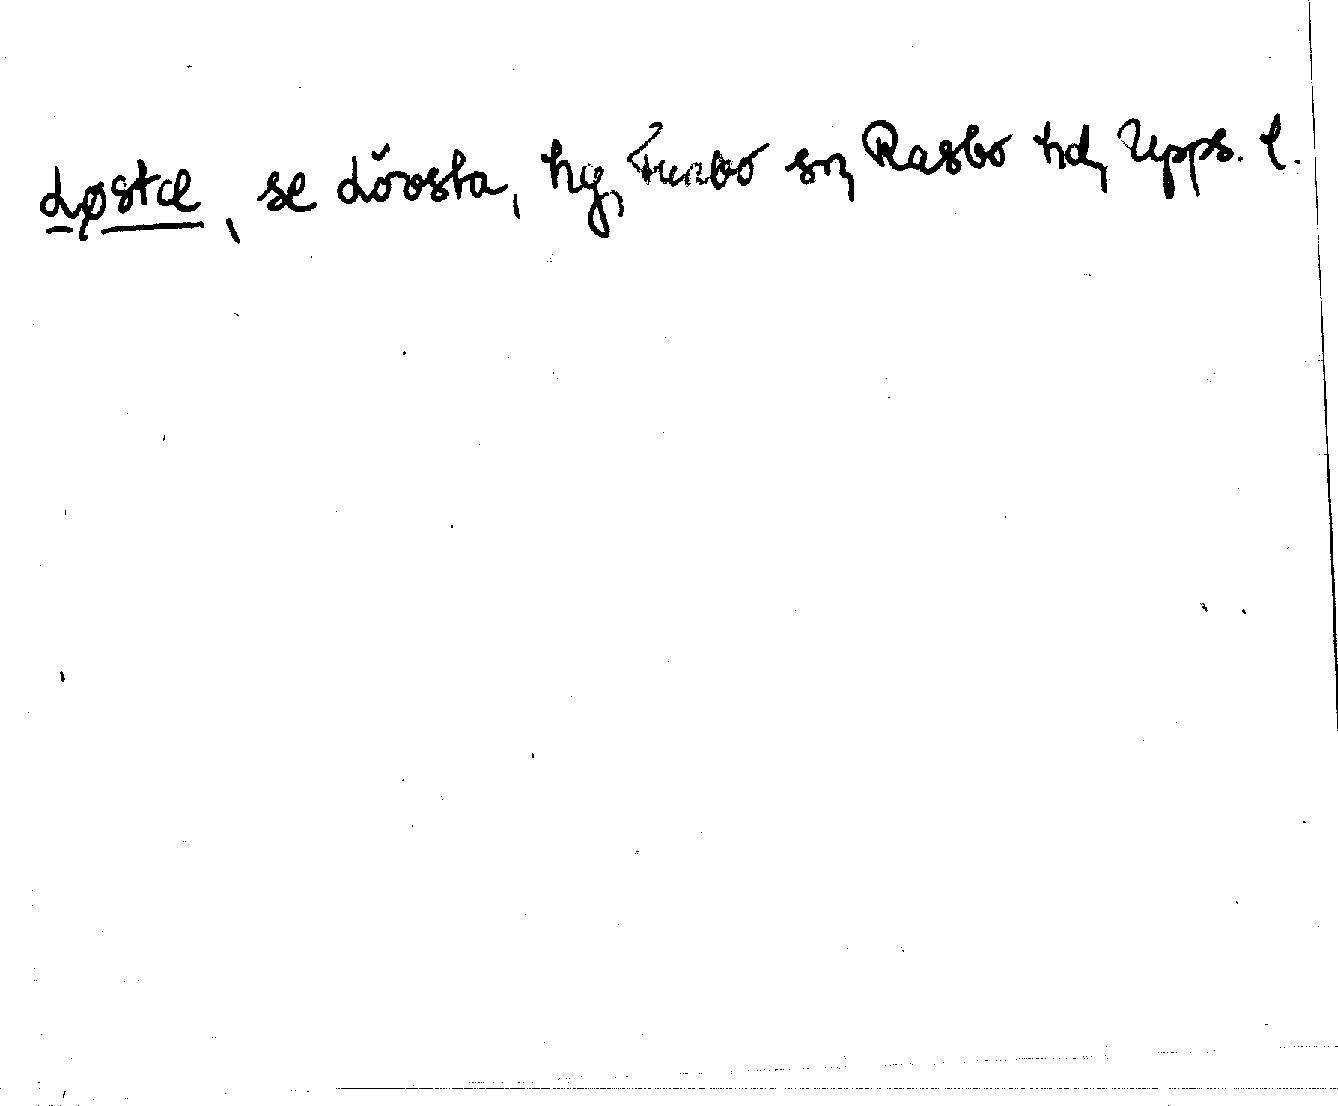 Løstæ, se Lövsta, hg, Funbo sn, Rasbo hd, Upps. l.